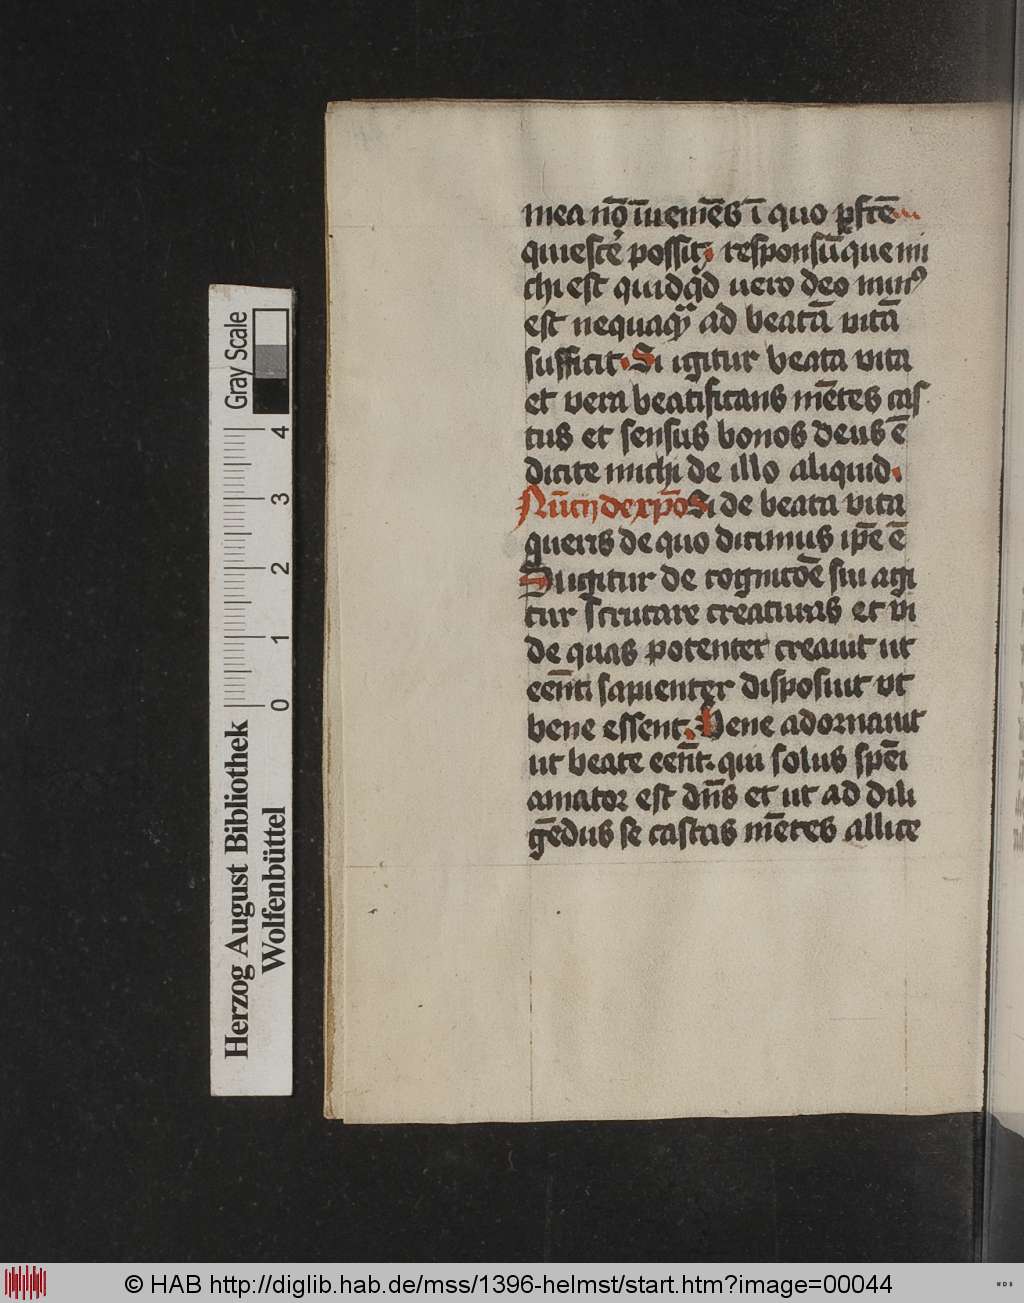 mea nō īuemēs ī quo pfcē
quiescē possit. responsūque mi
chi est quidqd uero deo minꝰ
est nequaqꝫ ad beatā vitā
sufficit. Si igitur beata vita
et vera beatificans mētes cas
tus et sensus bonos deus ē
dicite michi de illo aliquid.
Nūcij de xp̄o Si de beata vita
queris de quo dicimus ip̄e ē
Si igitur de cognicōe sui agi
tur scrutare creaturas et vi
de quas potenter creauit ut
eēnt sapienter disposuit vt
bene essent. Bene adornauit
ut beate eēnt. qui solus spēi
amator est dn̄s et ut ad dili
gēdus se castas mētes allice
Gray Scale
0 1 2 3 4
Herzog August Bibliothek
Wolfenbüttel
© HAB http://diglib.hab.de/mss/1396-helmst/start.htm?image=00044